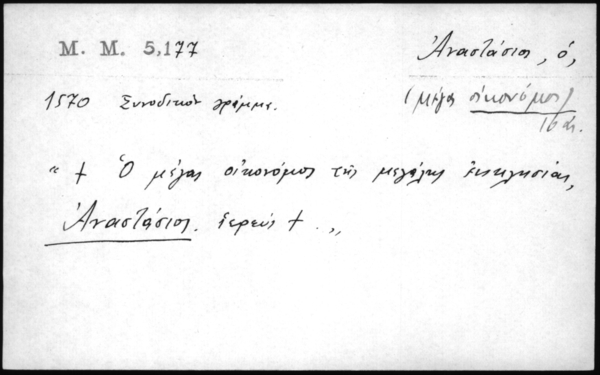 M. M. 5,177
Ἀναστάσιος, ὁ,
(μέγας οἰκονόμος)
16 αἰ.
1570 Συνοδικὸν γράμμα.
" + Ὁ μέγας οἰκονόμος τῆς μεγάλης Ἐκκλησίας,
Ἀναστάσιος. ἱερεὺς + . „